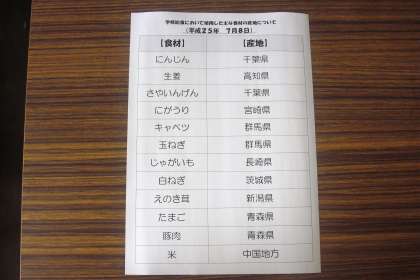 学校給食において使用した主な食材の産地について
(平成25年 7月8日)
【食材】 【産地】
にんじん 千葉県
生姜 高知県
さやいんげん 千葉県
にがうり 宮崎県
キャベツ 群馬県
玉ねぎ 群馬県
じゃがいも 長崎県
白ねぎ 茨城県
えのき茸 新潟県
たまご 青森県
豚肉 青森県
米 中国地方